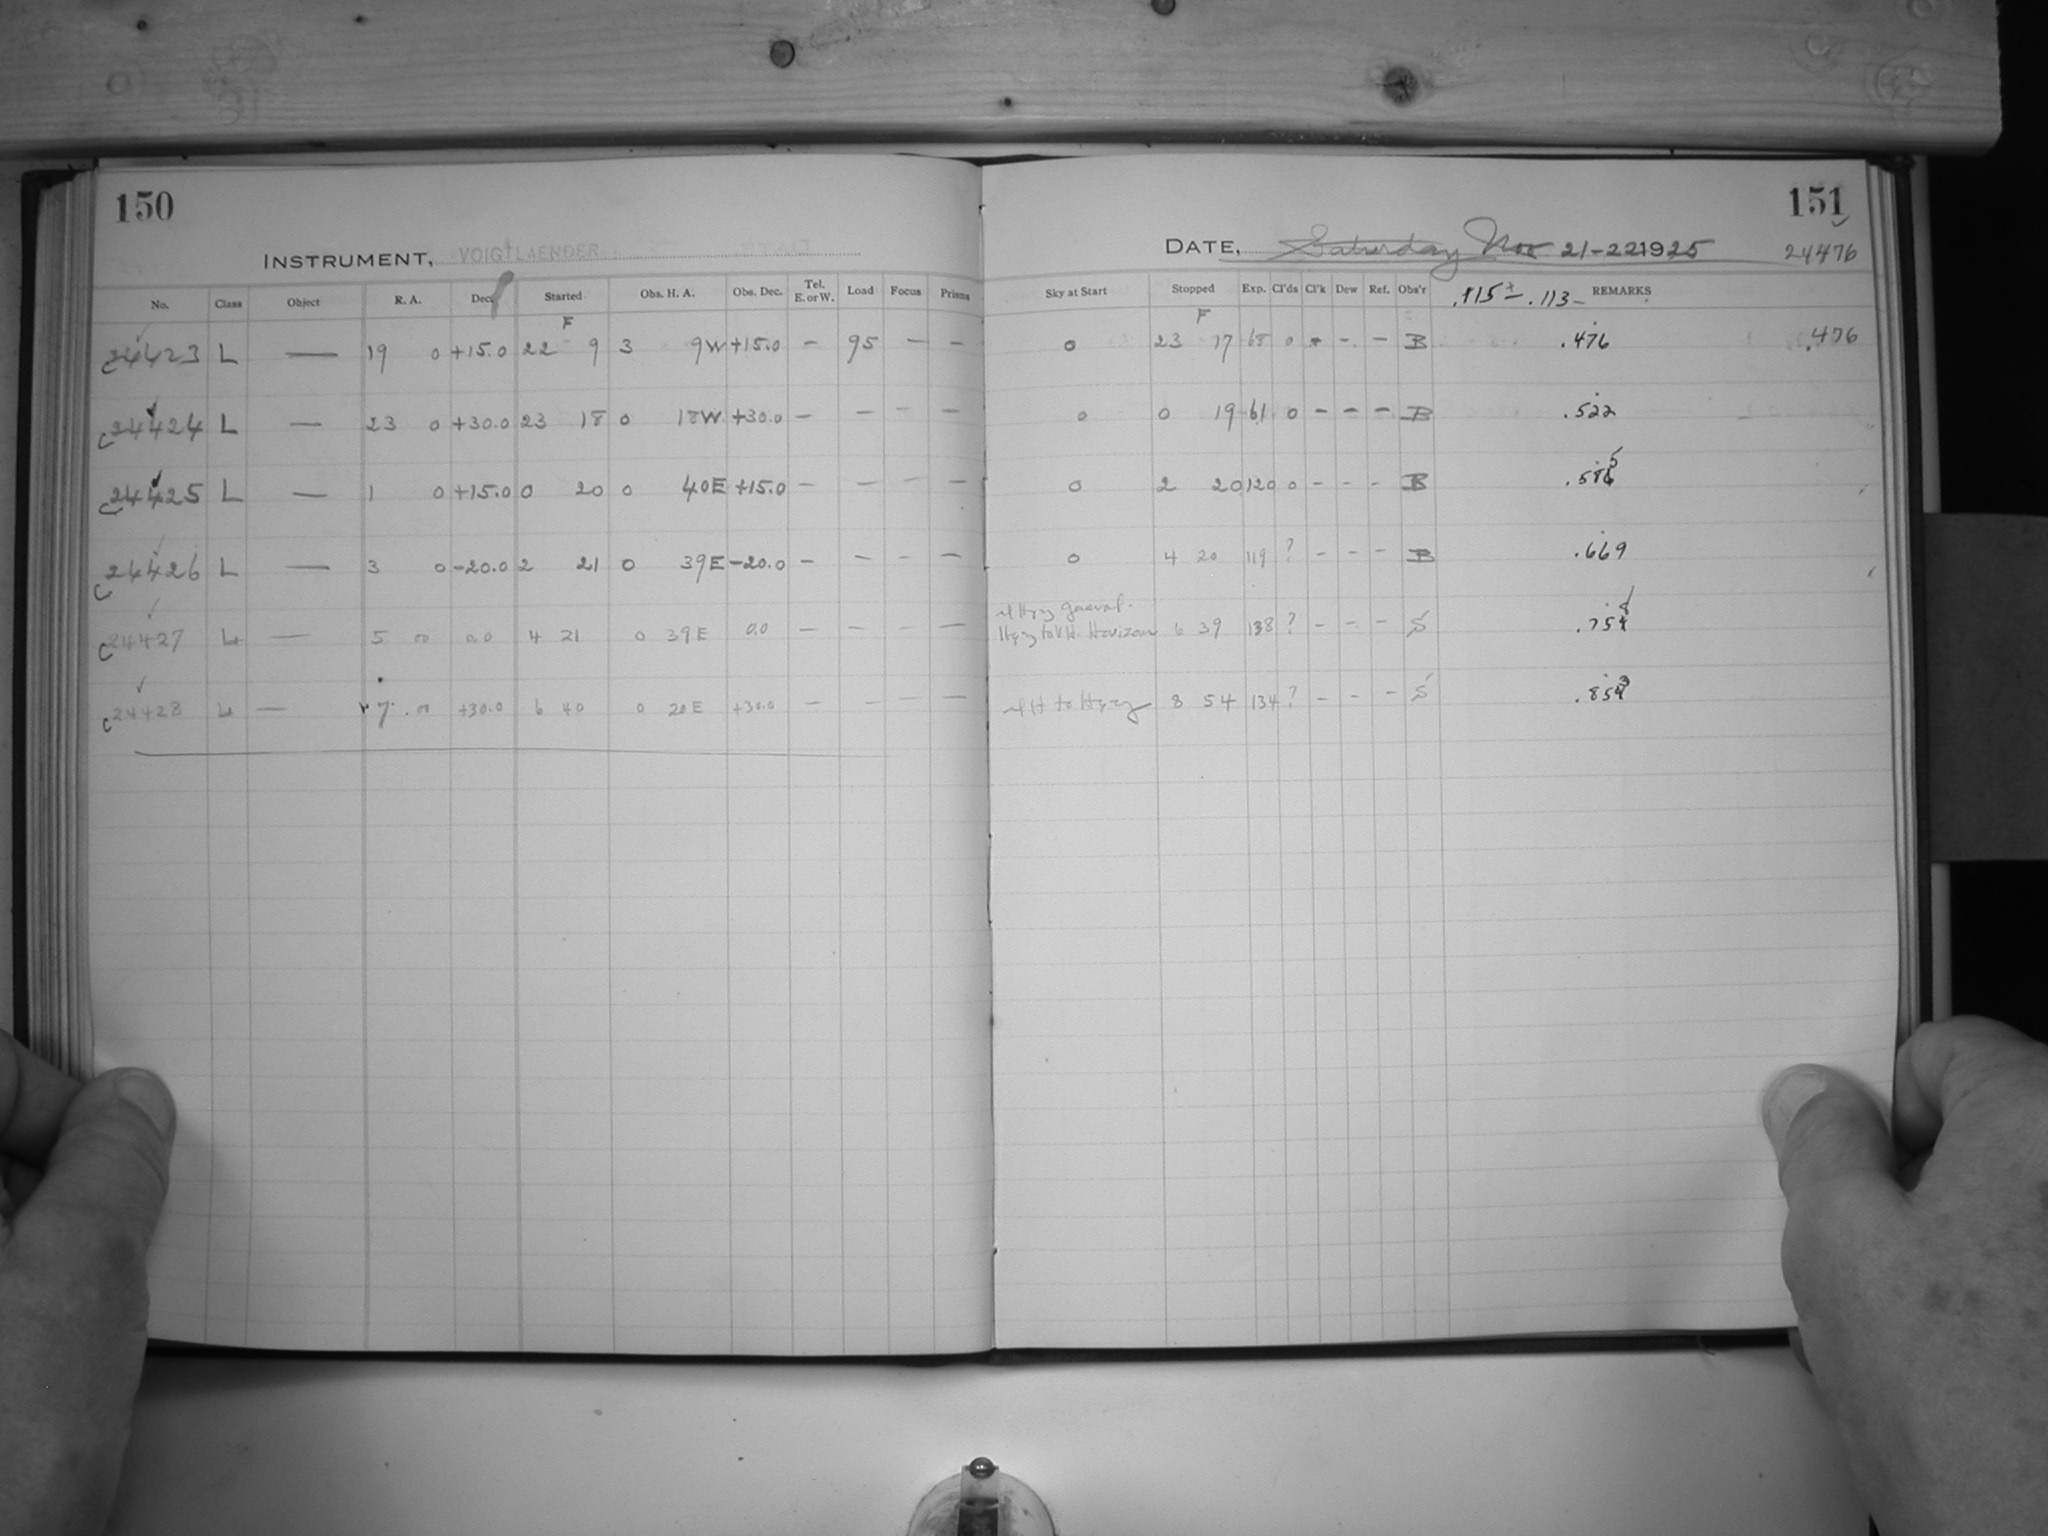 150
INSTRUMENT, VOIGTLAENDER
No. Class Object R. A. Dec. Started Obs. H. A. Obs. Dec. Tel. E. or W. Load Focus Prisms
F
C24423 L — 19 0 +15.0 22 9 3 9W +15.0 — 95 — —
C24424 L — 23 0 +30.0 23 18 0 18W +30.0 — — — —
C24425 L — 1 0 +15.0 0 20 0 40E +15.0 — — — —
C24426 L — 3 0 -20.0 2 21 0 39E -20.0 — — — —
C24427 L — 5 00 0.0 4 21 0 39E 0.0 — — — —
C24428 L — 7 00 +30.0 6 40 0 20E +30.0 — — — —
151
DATE, Saturday Nov 21-22 1925 24476
Sky at Start Stopped Exp. Cl'ds Cl'k Dew Ref. Obs'r .115 - .113 - REMARKS
F
0 23 17 68 0 - - - B .476 .476
0 0 19 61 0 - - - B .522
0 2 20 120 0 - - - B .585
0 4 20 119 ? - - - B .669
Hazy general.
Hazy to Horizon 6 39 138 ? - - - S .754
to Hazy 8 54 134 ? - - - S .853